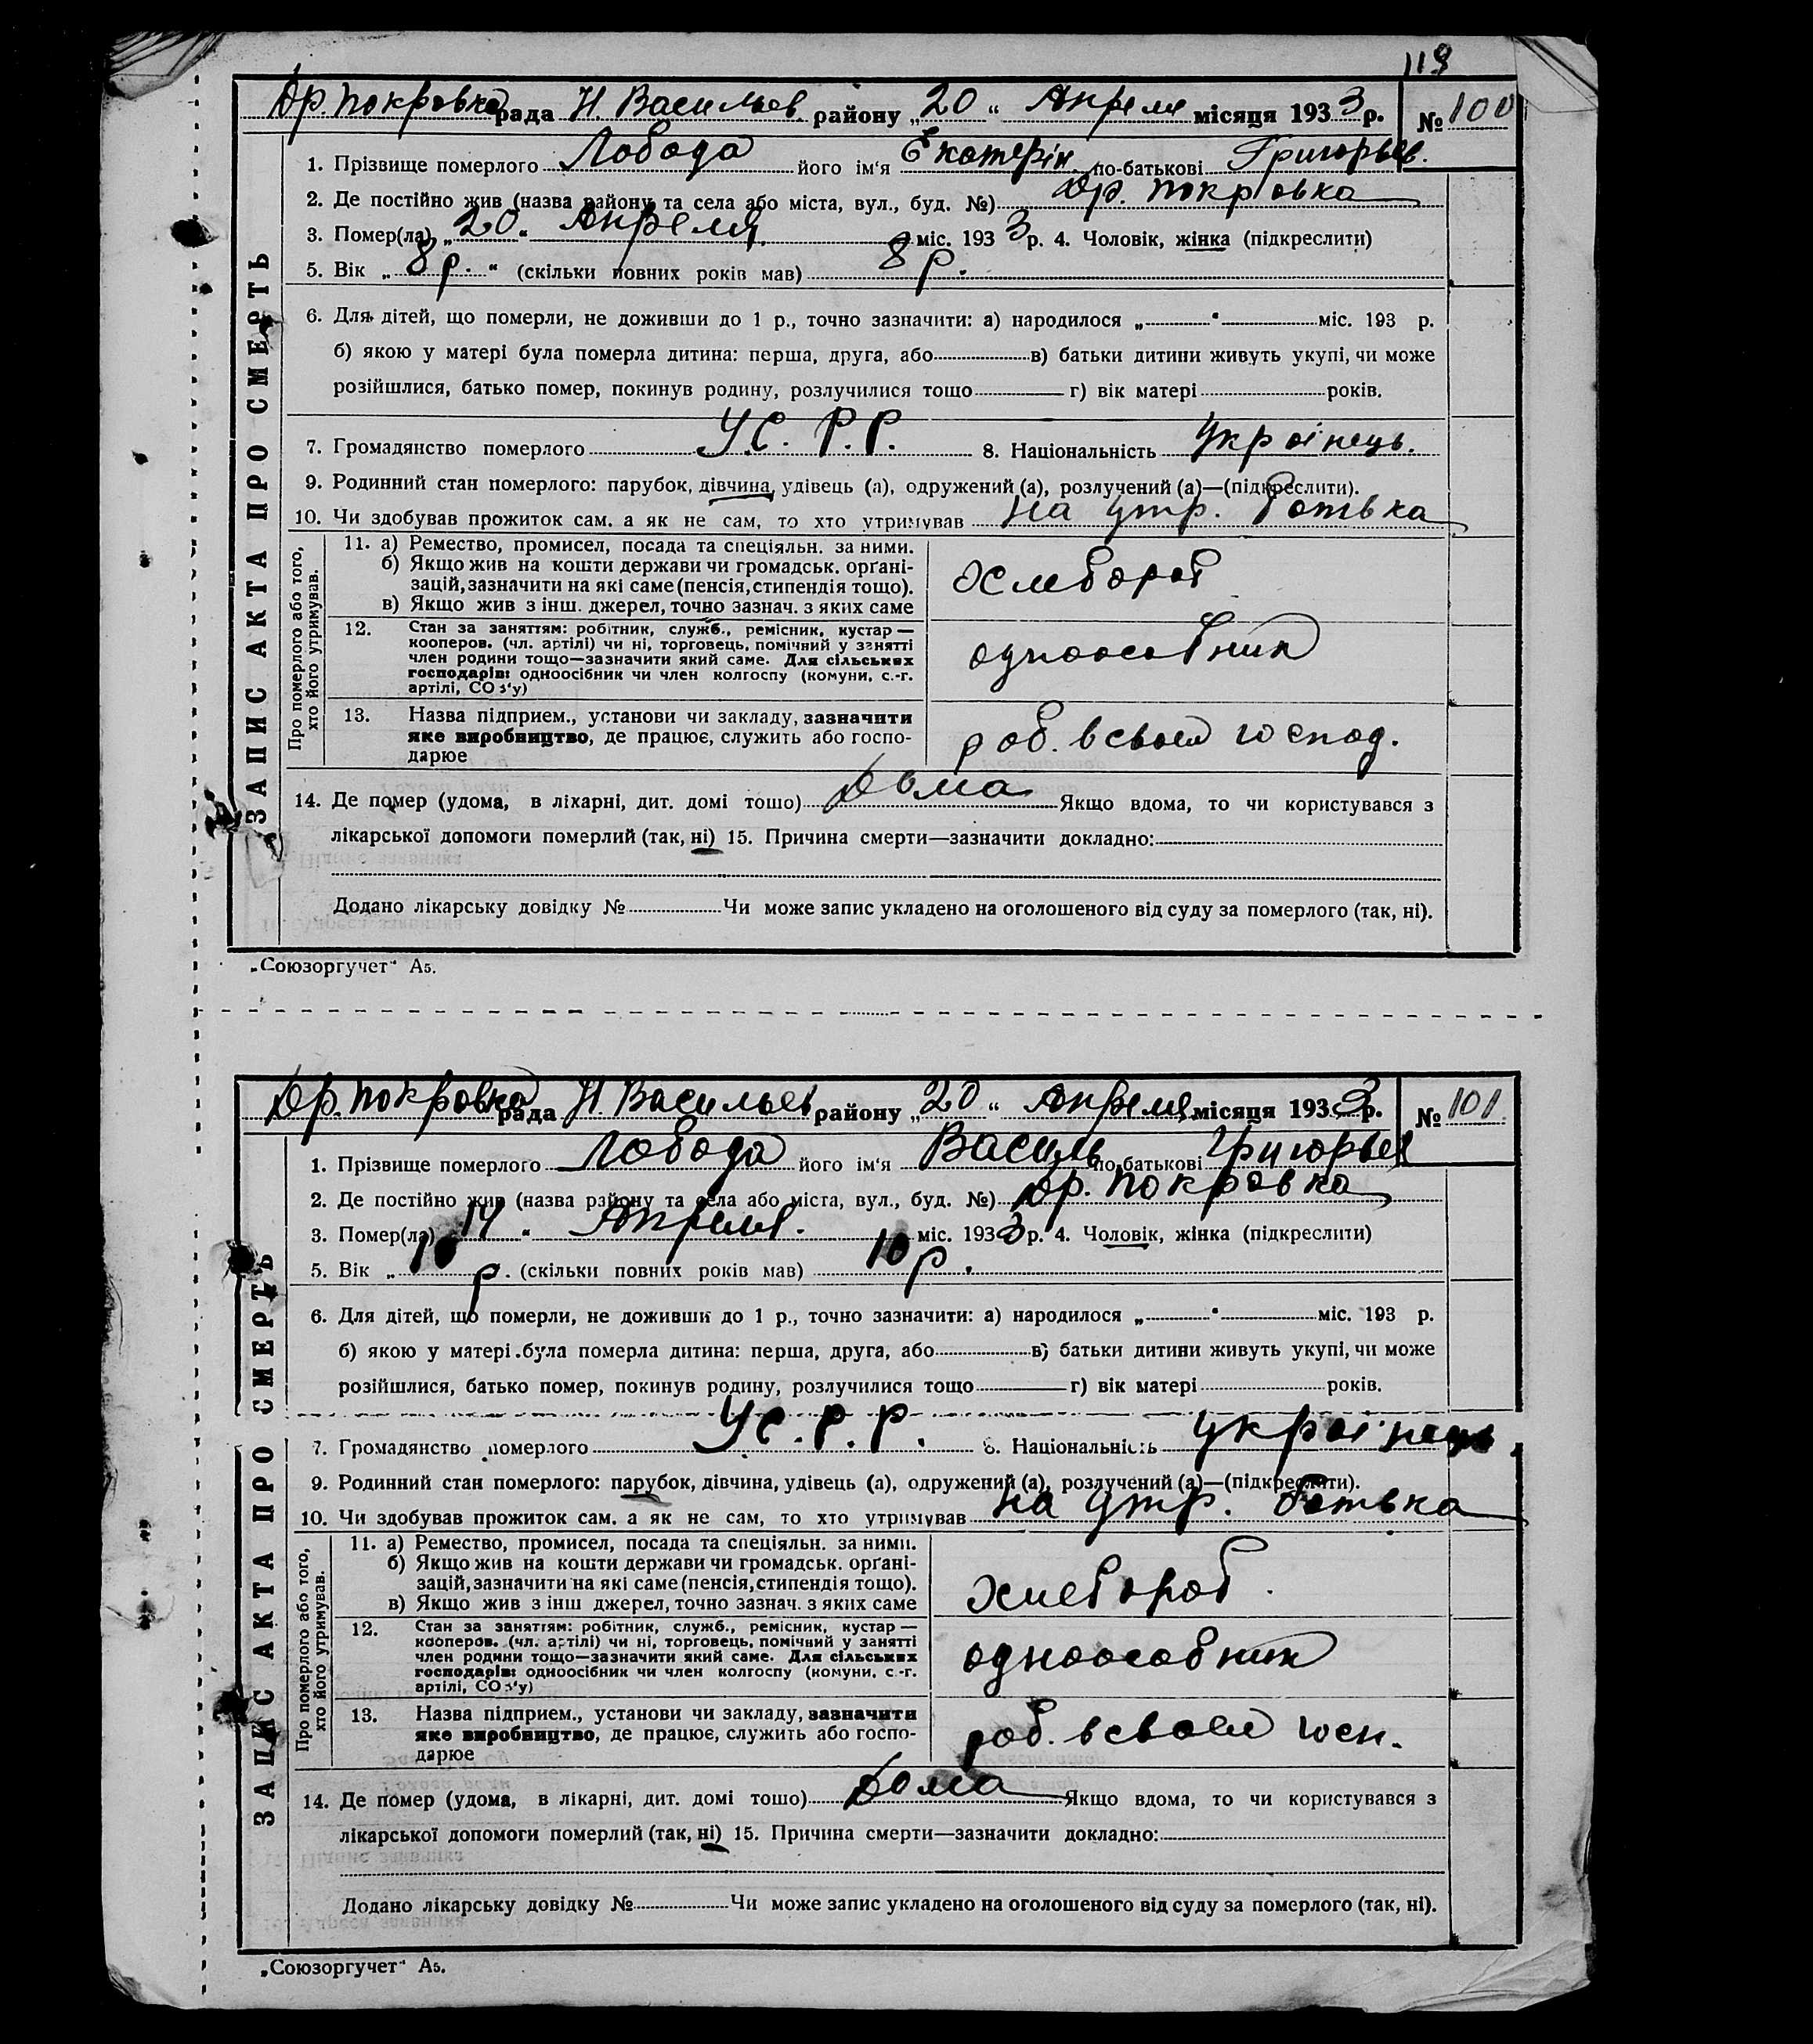 119
Др. Покровка рада Н. Васильев району „20“ Апреля місяця 1933 р. № 100
ЗАПИС АКТА ПРО СМЕРТЬ
1. Прізвище померлого Лобода його ім‘я Екатерін по-батькові Григорьев.
2. Де постійно жив (назва району та села або міста, вул., буд. №) Др. Покровка
3. Помер(ла) „20“ Апреля міс. 1933 р. 4. Чоловік, жінка (підкреслити)
5. Вік „8 р.“ (скільки повних років мав) 8 р.
6. Для дітей, що померли, не доживши до 1 р., точно зазначити: а) народилося „ “ міс. 193 р.
б) якою у матері була померла дитина: перша, друга, або в) батьки дитини живуть укупі, чи може
розійшлися, батько помер, покинув родину, розлучилися тощо г) вік матері років.
7. Громадянство померлого У.С.Р.Р. 8. Національність Українець.
9. Родинний стан померлого: парубок, дівчина, удівець (а), одружений (а), розлучений (а)—(підкреслити).
10. Чи здобував прожиток сам, а як не сам, то хто утримував на утр. батька
Про померлого або того, хто його утримував.
11. а) Ремество, промисел, посада та спеціяльн. за ними.
б) Якщо жив на кошти держави чи громадськ. орґані-
зацій, зазначити на які саме (пенсія, стипендія тощо).
в) Якщо жив з інш. джерел, точно зазнач. з яких саме
хлебороб
12. Стан за заняттям: робітник, служб., ремісник, кустар —
кооперов. (чл. артілі) чи ні, торговець, помічний у занятті
член родини тощо—зазначити який саме. Для сільських
господарів: одноосібник чи член колгоспу (комуни, с.-г.
артілі, СОЗ‘у)
одноособник
13. Назва підприєм., установи чи закладу, зазначити
яке виробництво, де працює, служить або госпо-
дарює
роб. в своем господ.
14. Де помер (удома, в лікарні, дит. домі тошо) Дома Якщо вдома, то чи користувався з
лікарської допомоги померлий (так, ні) 15. Причина смерти—зазначити докладно:
Додано лікарську довідку № Чи може запис укладено на оголошеного від суду за померлого (так, ні).
„Союзоргучет“ А5.
Др. Покровка рада Н. Васильев району „20“ Апреля місяця 1933 р. № 101
ЗАПИС АКТА ПРО СМЕРТЬ
1. Прізвище померлого Лобода його ім‘я Василь по-батькові Григорьев
2. Де постійно жив (назва району та села або міста, вул., буд. №) Др. Покровка
3. Помер(ла) 14“ Апреля. міс. 1933 р. 4. Чоловік, жінка (підкреслити)
5. Вік „10 р. (скільки повних років мав) 10 р.
6. Для дітей, що померли, не доживши до 1 р., точно зазначити: а) народилося „ “ міс. 193 р.
б) якою у матері була померла дитина: перша, друга, або в) батьки дитини живуть укупі, чи може
розійшлися, батько помер, покинув родину, розлучилися тощо г) вік матері років.
7. Громадянство померлого У.С.Р.Р. 8. Національність Українець.
9. Родинний стан померлого: парубок, дівчина, удівець (а), одружений (а), розлучений (а)—(підкреслити).
10. Чи здобував прожиток сам, а як не сам, то хто утримував на утр. батька
Про померлого або того, хто його утримував.
11. а) Ремество, промисел, посада та спеціяльн. за ними.
б) Якщо жив на кошти держави чи громадськ. орґані-
зацій, зазначити на які саме (пенсія, стипендія тощо).
в) Якщо жив з інш джерел, точно зазнач. з яких саме
хлебороб.
12. Стан за заняттям: робітник, служб., ремісник, кустар —
кооперов. (чл. артілі) чи ні, торговець, помічний у занятті
член родини тощо—зазначити який саме. Для сільських
господарів: одноосібник чи член колгоспу (комуни, с.-г.
артілі, СОЗ‘у)
одноособник
13. Назва підприєм., установи чи закладу, зазначити
яке виробництво, де працює, служить або госпо-
дарює
роб. в своем госп.
14. Де помер (удома, в лікарні, дит. домі тошо) Дома Якщо вдома, то чи користувався з
лікарської допомоги померлий (так, ні) 15. Причина смерти—зазначити докладно:
Додано лікарську довідку № Чи може запис укладено на оголошеного від суду за померлого (так, ні).
„Союзоргучет“ А5.